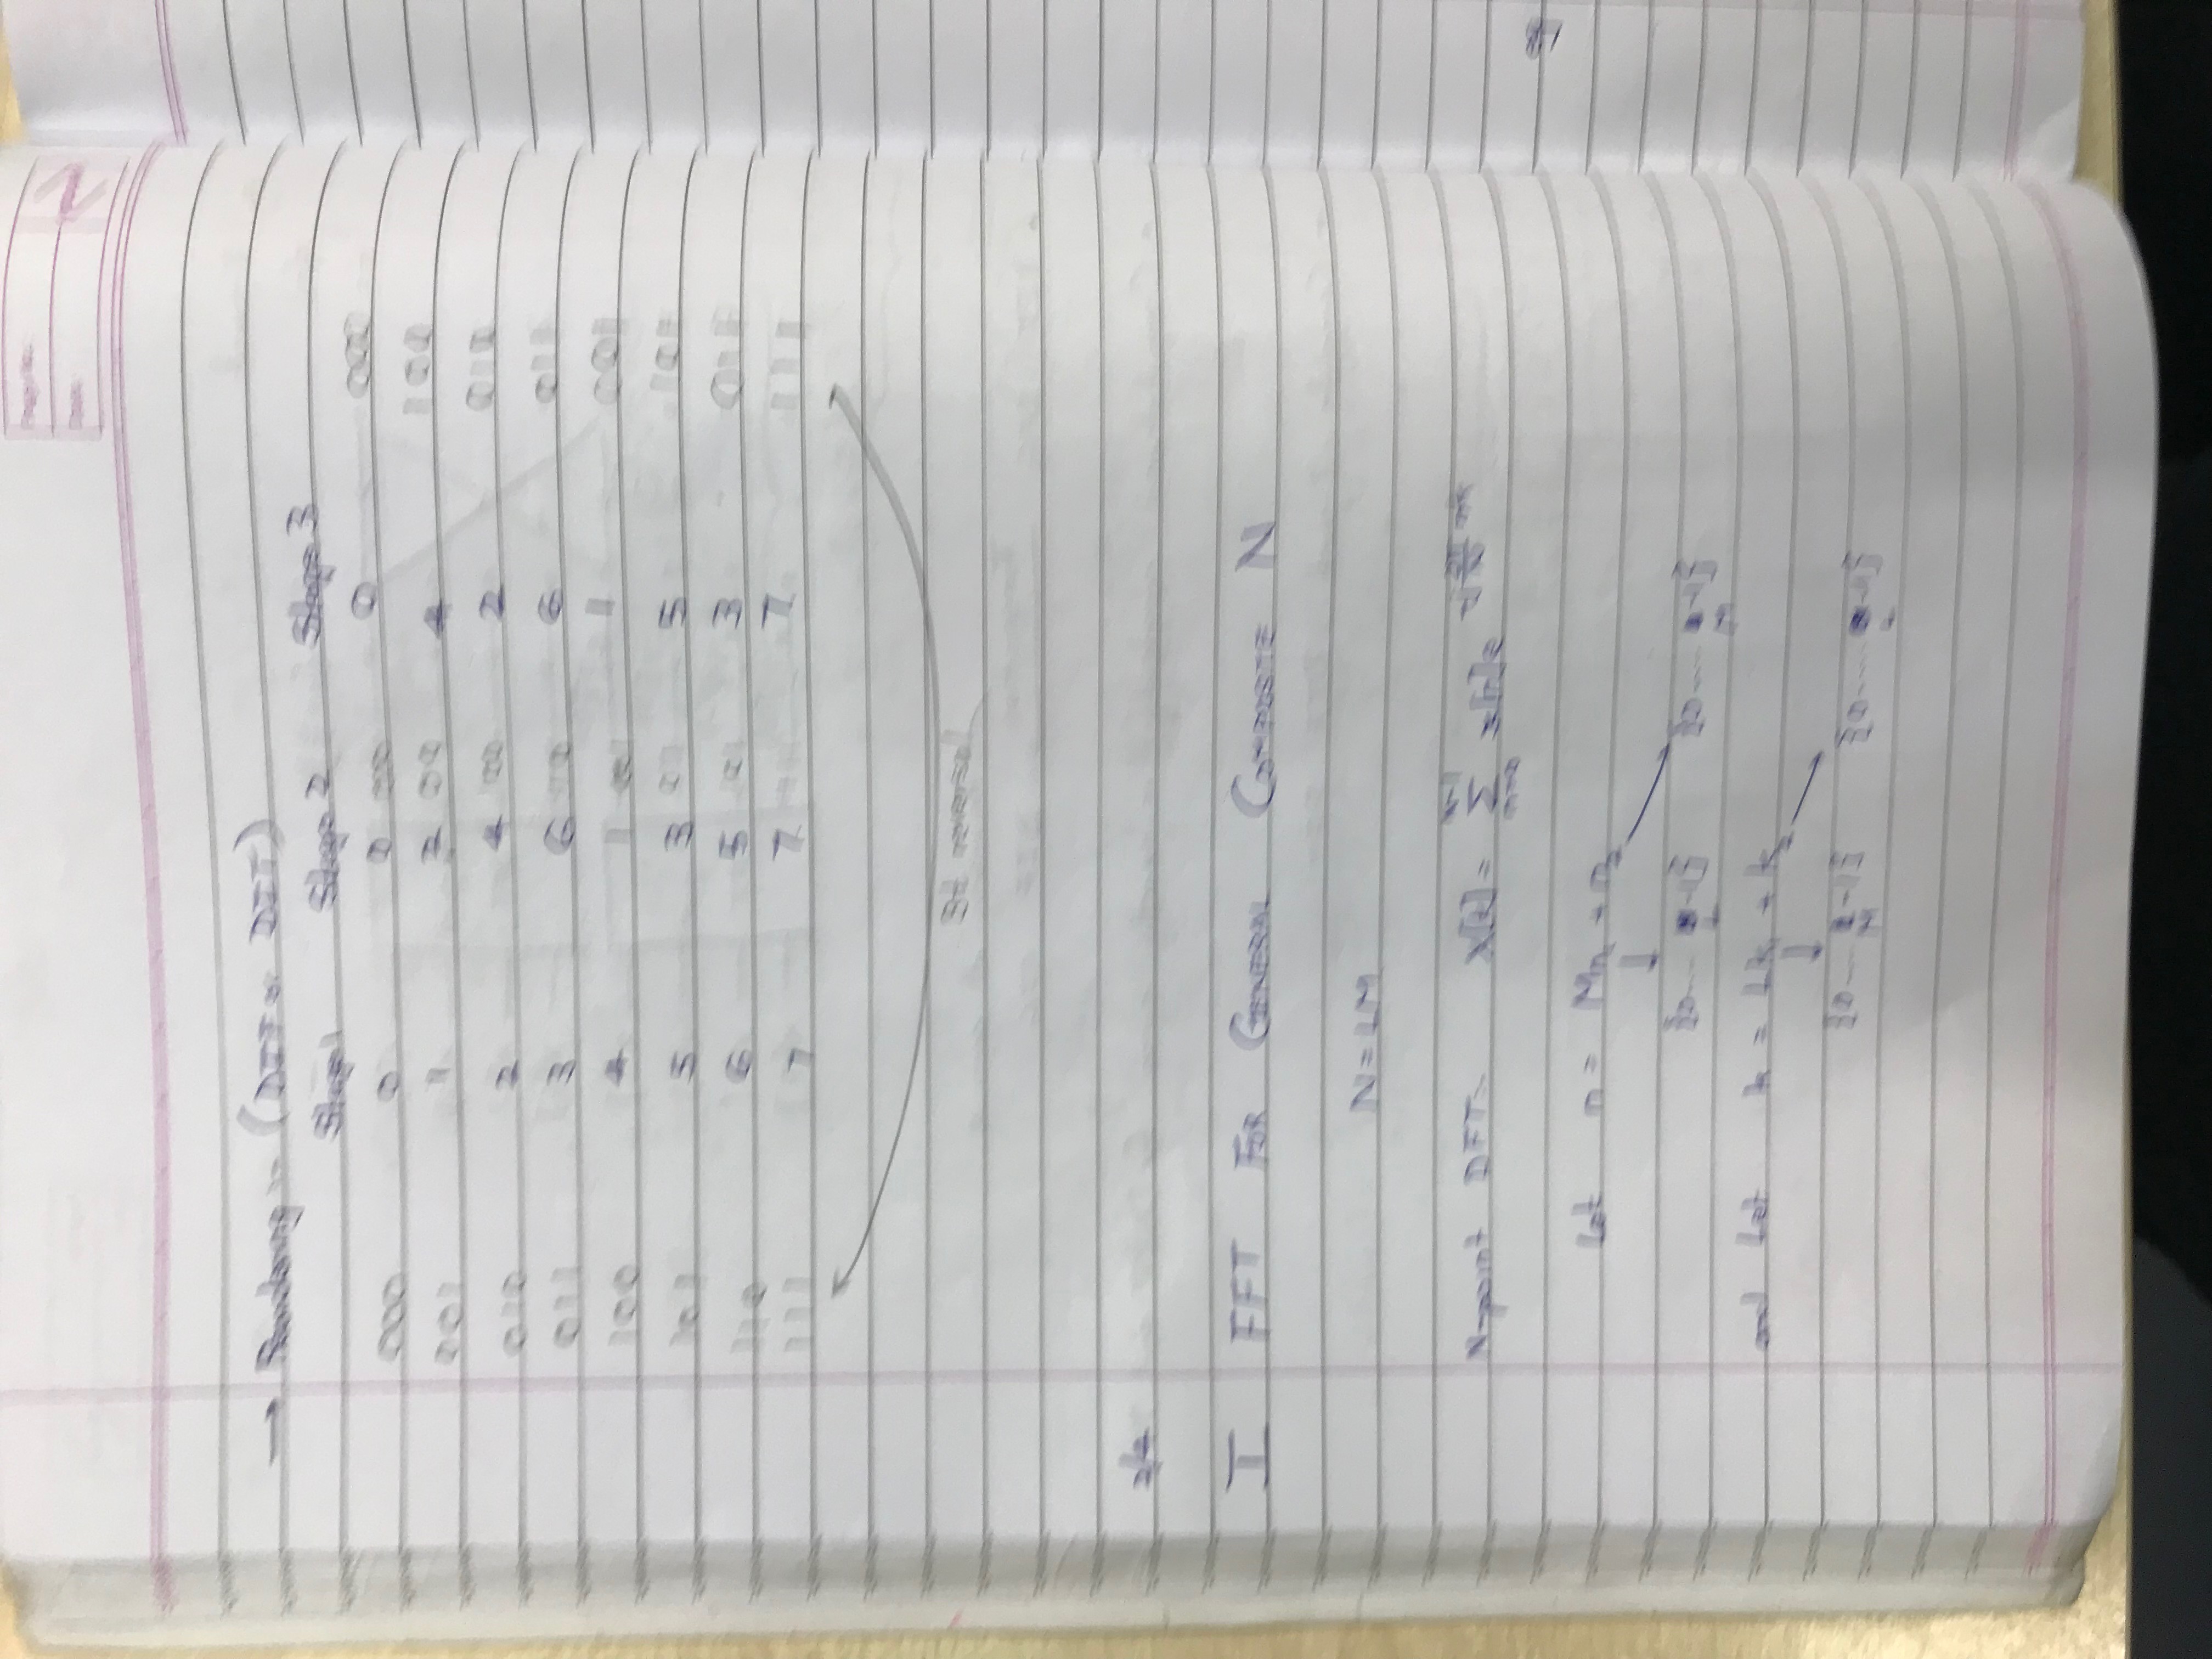 → Reordering :- (DIT or DIT)
Stage 1 Stage 2 Stage 3
000 0 0 00 0 000
001 1 2 00 4 100
010 2 4 2 010
011 3 6 10 6 011
100 4 1 1 001
101 5 3 01 5 101
110 6 5 3 011
111 7 7 11 7 111
Bit reversal
2/4
I FFT FOR GENERAL COMPOSITE N
N = LM
N-point DFT:- X[k] = Σ x[n] e
n=0
Let n = Mn₁ + n₂
↓
{0.... L-1} {0.... M-1}
and Let k = Lk₁ + k₂
↓
{0.... M-1} {0.... L-1}